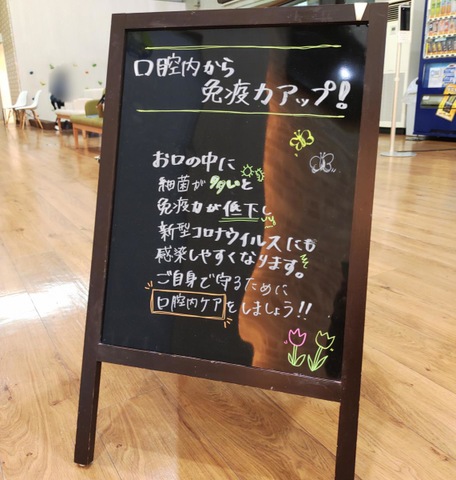 口腔内から
免疫力アップ!
お口の中に
細菌が多いと
免疫力が低下し
新型コロナウイルスにも
感染しやすくなります。
ご自身で守るために
口腔内ケアをしましょう!!